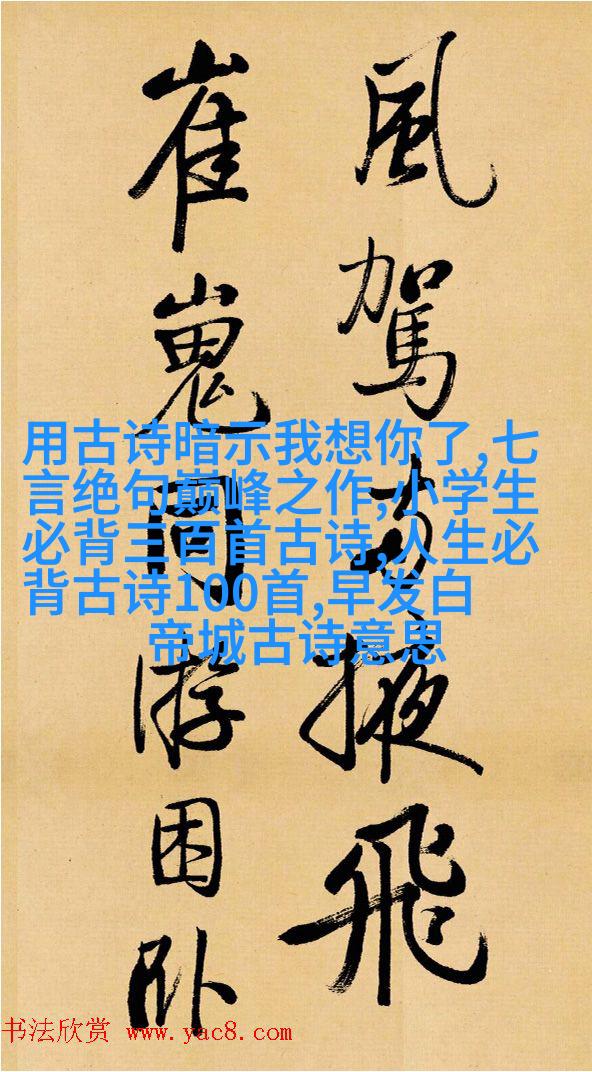 風駕兩掖飛
崔嵬同游困卧
用古诗暗示我想你了,七
言绝句巅峰之作,小学生
必背三百首古诗,人生必
背古诗100首,早发白
帝城古诗意思
书法欣赏 www.yac8.com